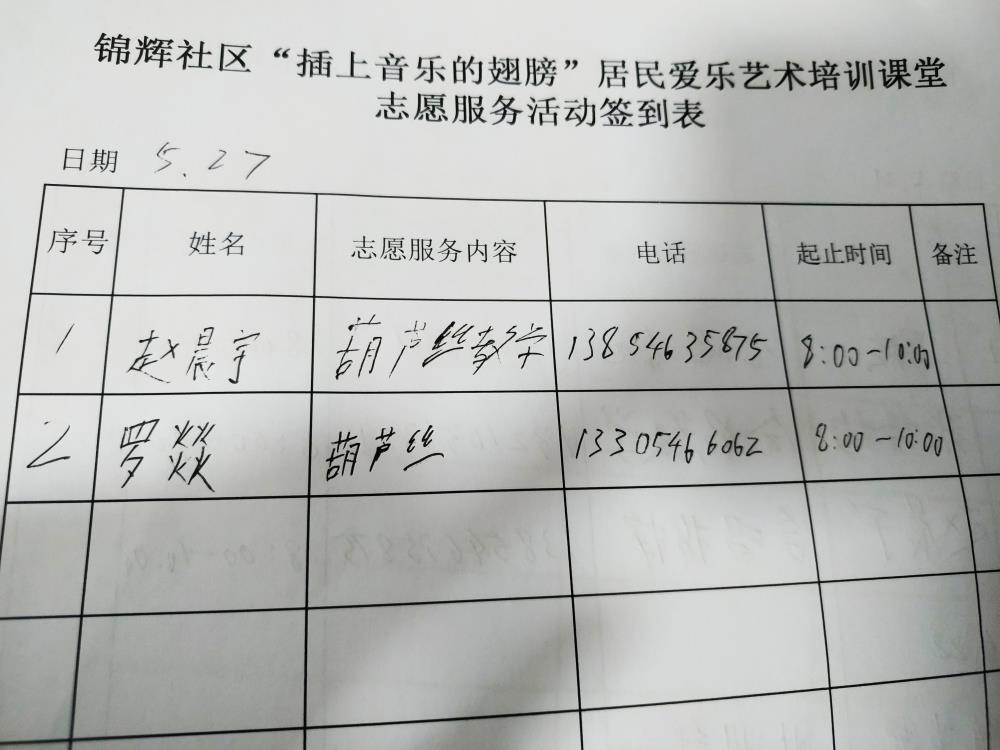 锦辉社区“插上音乐的翅膀”居民爱乐艺术培训课堂
志愿服务活动签到表
日期 5.27
序号 姓名 志愿服务内容 电话 起止时间 备注
1 赵晨宇 葫芦丝教学 13854635875 8:00-10:00
2 罗燚 葫芦丝 13305466062 8:00-10:00